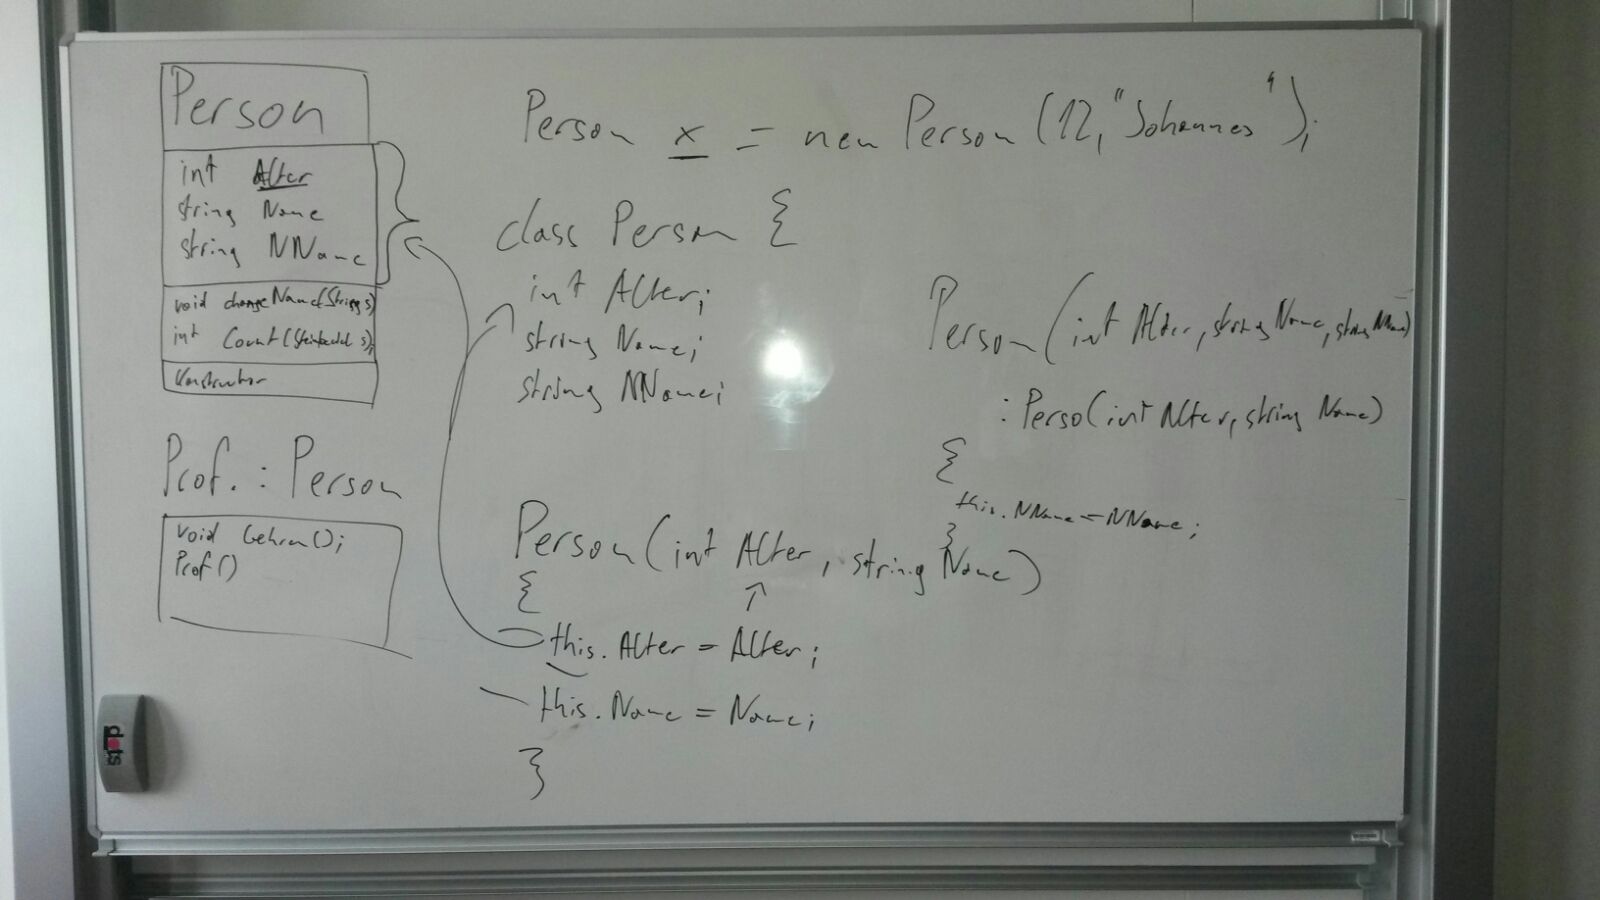 Person
int Alter
string Name
string NName
void changeName(String s)
int Count( s);
Konstruktor
Prof. : Person
void ();
Prof()
Person x = new Person(12, "Johannes");
class Person {
int Alter;
string Name;
string NName;
Person(int Alter, string Name)
{
this.Alter = Alter;
this.Name = Name;
}
Person(int Alter, string Name, string NName)
: Perso(int Alter, string Name)
{
this.NName = NName;
}
dots